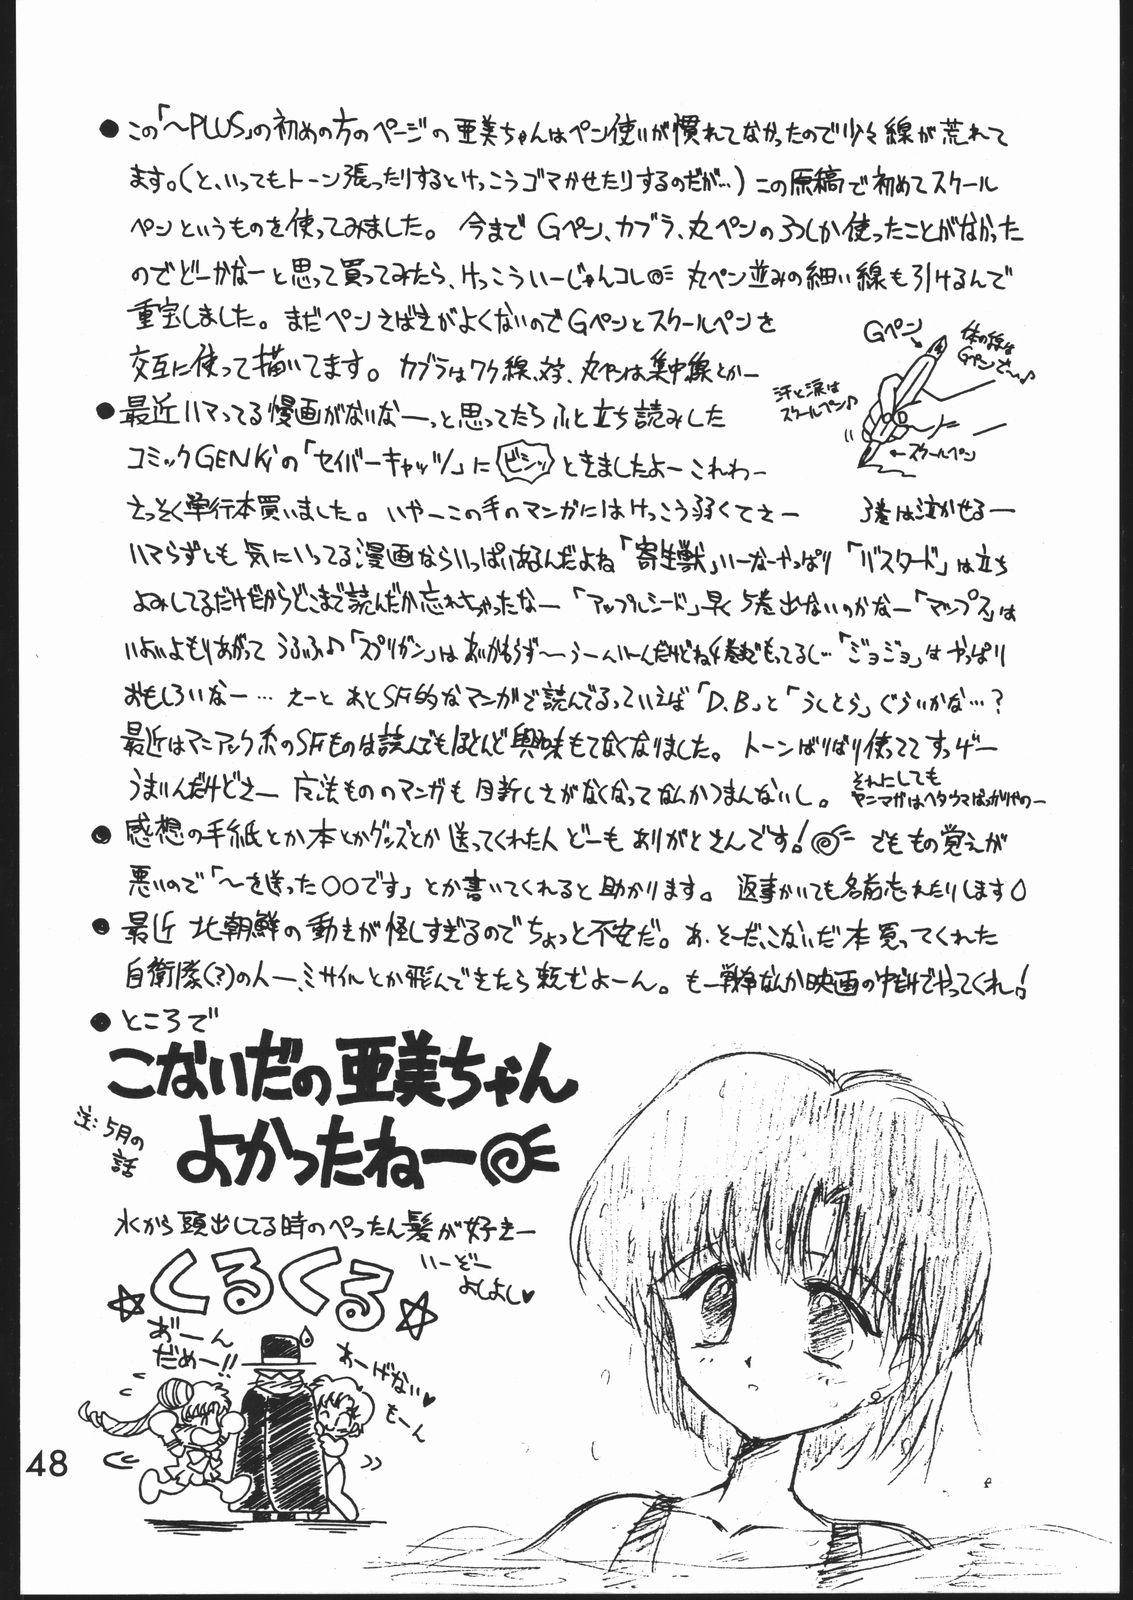 ●この「〜PLUS」の初めの方のページの亜美ちゃんはペン使いが慣れてなかったので少々線が荒れて
ます。(と、いってもトーン張ったりするとけっこうゴマかせたりするのだが…)この原稿で初めてスクール
ペンというものを使ってみました。今までGペン、カブラ、丸ペンの3つしか使ったことがなかった
のでどーかなーと思って買ってみたら、けっこういーじゃんコレ 丸ペン並みの細い線も引けるんで
重宝しました。まだペンさばきがよくないのでGペンとスクールペンを
交互に使って描いてます。カブラはワク線、対、丸ペンは集中線とかー
Gペン
体の線は
Gペンで〜♪
汗と涙は
スクールペン♪
←スクールペン
●最近ハマってる漫画がないなーっと思ってたらふと立ち読みした
コミックGENKiの「セイバーキャッツ」に ビシッ ときましたよーこれわー
さっそく単行本買いました。いやーこの手のマンガにはけっこう弱くてさー 3巻は泣かせるー
ハマらずとも気にいってる漫画ならいっぱいあるんだよね「寄生獣」いーなーやっぱり「バスタード」は立ち
よみしてるだけだからどこまで読んだか忘れちゃったなー「アップルシード」早く5巻出ないのかなー「マップス」は
いよいよもりあがってうふふ♪「スプリガン」はあいかわらず〜うーんいーんだけどね4巻までもってるし…「ジョジョ」はやっぱり
おもしろいなー…えーとあとSF的なマンガで読んでるっていえば「D.B」と「うしとら」ぐらいかな…?
最近はマニアック系のSFものは読んでもほとんど興味もてなくなりました。トーンばりばり使っててすっげー
うまいんだけどさー 魔法もののマンガも目新しさがなくなってなんかつまんないし。
それにしても
ヤンマガはヘタウマばっかりやのー
●感想の手紙とか本とかグッズとか送ってくれた人どーもありがとさんです! でももの覚えが
悪いので「〜を送った○○です」とか書いてくれると助かります。返事かいても名前忘れたりします
●最近北朝鮮の動きが怪しすぎるのでちょっと不安だ。あ、そーだ、こないだ本買ってくれた
自衛隊(?)の人ー、ミサイルとか飛んできたら頼むよーん。もー戦争なんか映画の中だけでやってくれ!
●ところで
こないだの亜美ちゃん
よかったねー
注:5月の
話
水から頭出してる時のぺったん髪が好きー
いーどー
よしよし♥
☆くるくる☆
あ゛ーん
だめー!!
あーげない♥
もーん
48